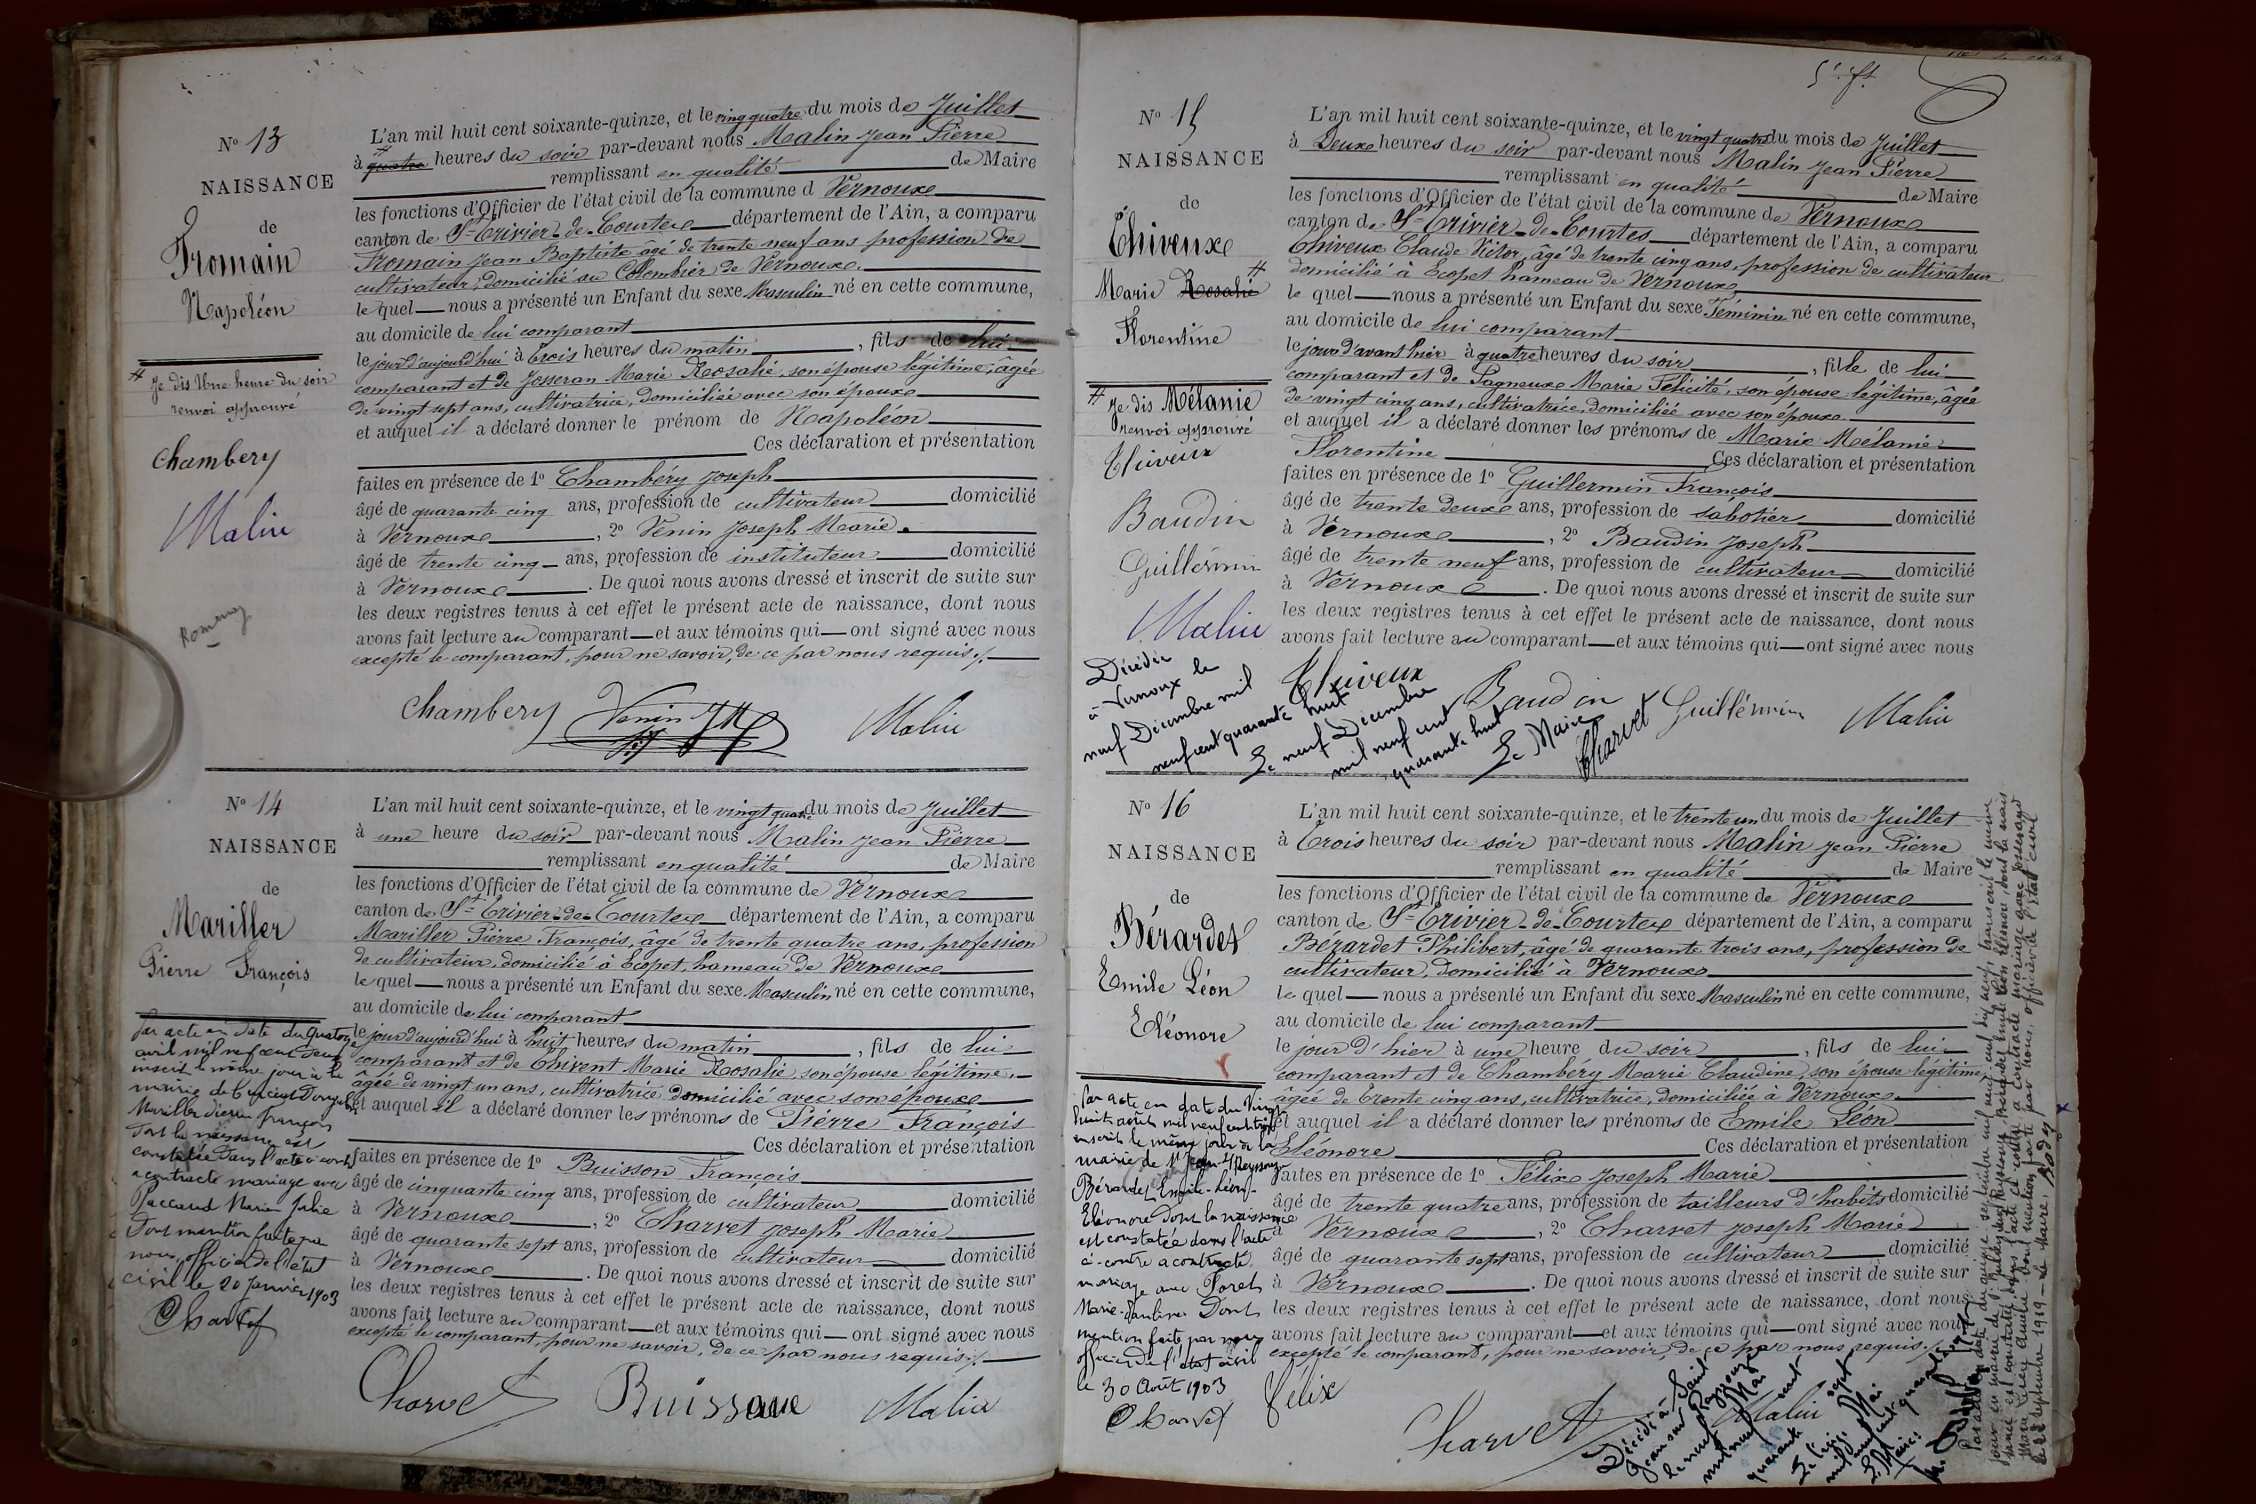 N° 13
NAISSANCE
de
Fromain
Napoléon
# Je dis Une heure du soir
renvoi approuvé
Chambery
Malin
L'an mil huit cent soixante-quinze, et le vingt quatre du mois de Juillet
à quatre heures du soir par-devant nous Malin Jean Pierre
remplissant en qualité de Maire
les fonctions d'Officier de l'état civil de la commune d Vernoux
canton de St Trivier-de-Courtes département de l'Ain, a comparu
Fromain Jean Baptiste âgé de trente neuf ans profession de
cultivateur, domicilié au Colombier de Vernoux.
le quel nous a présenté un Enfant du sexe Masculin né en cette commune,
au domicile de lui comparant
le jour d'aujourd'hui à trois heures du matin, fils de lui
comparant et de Josseran Marie Rosalie, son épouse légitime, âgée
de vingt sept ans, cultivatrice, domiciliée avec son époux
et auquel il a déclaré donner le prénom de Napoléon
Ces déclaration et présentation
faites en présence de 1° Chambéry Joseph
âgé de quarante cinq ans, profession de cultivateur domicilié
à Vernoux, 2° Venin Joseph Marie.
âgé de trente cinq ans, profession de instituteur domicilié
à Vernoux. De quoi nous avons dressé et inscrit de suite sur
les deux registres tenus à cet effet le présent acte de naissance, dont nous
avons fait lecture au comparant et aux témoins qui ont signé avec nous
excepté le comparant, pour ne savoir, de ce par nous requis ./.
Chambery Venin JM Malin
N° 14
NAISSANCE
de
Mariller
Pierre François
Par acte en date du quatorze
avril mil neuf cent
inscrit le même jour à la
mairie de
Mariller Pierre François
dont la naissance est
constatée dans l'acte ci-contre
a contracté mariage avec
Paccaud Marie Julie
Dont mention faite par
nous, officier de l'état
civil le 20 Janvier 1903
Charvet
L'an mil huit cent soixante-quinze, et le vingt quatre du mois de Juillet
à une heure du soir par-devant nous Malin Jean Pierre
remplissant en qualité de Maire
les fonctions d'Officier de l'état civil de la commune de Vernoux
canton de St Trivier-de-Courtes département de l'Ain, a comparu
Mariller Pierre François, âgé de trente quatre ans, profession
de cultivateur, domicilié à Ecopet, hameau de Vernoux
le quel nous a présenté un Enfant du sexe Masculin né en cette commune,
au domicile de lui comparant
le jour d'aujourd'hui à huit heures du matin, fils de lui
comparant et de Thivent Marie Rosalie, son épouse légitime,
âgée de vingt un ans, cultivatrice domicilié avec son époux
et auquel il a déclaré donner les prénoms de Pierre François
Ces déclaration et présentation
faites en présence de 1° Buisson François
âgé de cinquante cinq ans, profession de cultivateur domicilié
à Vernoux, 2° Charvet Joseph Marie
âgé de quarante sept ans, profession de cultivateur domicilié
à Vernoux. De quoi nous avons dressé et inscrit de suite sur
les deux registres tenus à cet effet le présent acte de naissance, dont nous
avons fait lecture au comparant et aux témoins qui ont signé avec nous
excepté le comparant, pour ne savoir, de ce par nous requis ./.
Charvet Buisson Malin
N° 15
NAISSANCE
de
Thiveux
Marie Rosalie #
Florentine
# Je dis Mélanie
renvoi approuvé
Thiveux
Baudin
Guillermin
Malin
L'an mil huit cent soixante-quinze, et le vingt quatre du mois de Juillet
à Deux heures du soir par-devant nous Malin Jean Pierre
remplissant en qualité de Maire
les fonctions d'Officier de l'état civil de la commune de Vernoux
canton de St Trivier-de-Courtes département de l'Ain, a comparu
Thiveux Claude Victor, âgé de trente cinq ans, profession de cultivateur
domicilié à Ecopet hameau de Vernoux
le quel nous a présenté un Enfant du sexe Féminin né en cette commune,
au domicile de lui comparant
le jour d'avant hier à quatre heures du soir, fille de lui
comparant et de Pagneux Marie Félicité, son épouse légitime, âgée
de vingt cinq ans, cultivatrice, domiciliée avec son époux.
et auquel il a déclaré donner les prénoms de Marie Mélanie
Florentine Ces déclaration et présentation
faites en présence de 1° Guillermin François
âgé de trente deux ans, profession de sabotier domicilié
à Vernoux, 2° Baudin Joseph
âgé de trente neuf ans, profession de cultivateur domicilié
à Vernoux. De quoi nous avons dressé et inscrit de suite sur
les deux registres tenus à cet effet le présent acte de naissance, dont nous
avons fait lecture au comparant et aux témoins qui ont signé avec nous
Thiveux Baudin Guillermin Malin
Décédée
à Vernoux le
neuf Décembre mil
neuf cent quarante huit
Le neuf Décembre
mil neuf cent
quarante huit
Le Maire
Charvet
N° 16
NAISSANCE
de
Bérardet
Emile Léon
Eléonore
Par acte en date du Vingt
huit août mil neuf cent trois
inscrit le même jour à la
mairie de St Jean s/Reyssouze
Bérardet Emile-Léon-
Eléonore dont la naissance
est constatée dans l'acte
ci-contre a contracté
mariage avec Foret
Marie-Pauline. Dont
mention faite par nous
officier de l'état civil
le 30 Août 1903
Charvet
L'an mil huit cent soixante-quinze, et le trente un du mois de Juillet
à trois heures du soir par-devant nous Malin Jean Pierre
remplissant en qualité de Maire
les fonctions d'Officier de l'état civil de la commune de Vernoux
canton de St Trivier-de-Courtes département de l'Ain, a comparu
Bérardet Philibert, âgé de quarante trois ans, profession de
cultivateur, domicilié à Vernoux
le quel nous a présenté un Enfant du sexe Masculin né en cette commune,
au domicile de lui comparant
le jour d'hier à une heure du soir, fils de lui
comparant et de Chambéry Marie Claudine, son épouse légitime,
âgée de trente cinq ans, cultivatrice, domiciliée à Vernoux.
et auquel il a déclaré donner les prénoms de Emile Léon
Eléonore Ces déclaration et présentation
faites en présence de 1° Félix Joseph Marie
âgé de trente quatre ans, profession de tailleurs d'habits domicilié
à Vernoux, 2° Charvet Joseph Marie
âgé de quarante sept ans, profession de cultivateur domicilié
à Vernoux. De quoi nous avons dressé et inscrit de suite sur
les deux registres tenus à cet effet le présent acte de naissance, dont nous
avons fait lecture au comparant et aux témoins qui ont signé avec nous
excepté le comparant, pour ne savoir, de ce par nous requis ./.
Félix Charvet Malin
Décédé à Saint
Jean sur Reyssouze
le neuf Mai
mil neuf cent
quarante sept
Le Maire